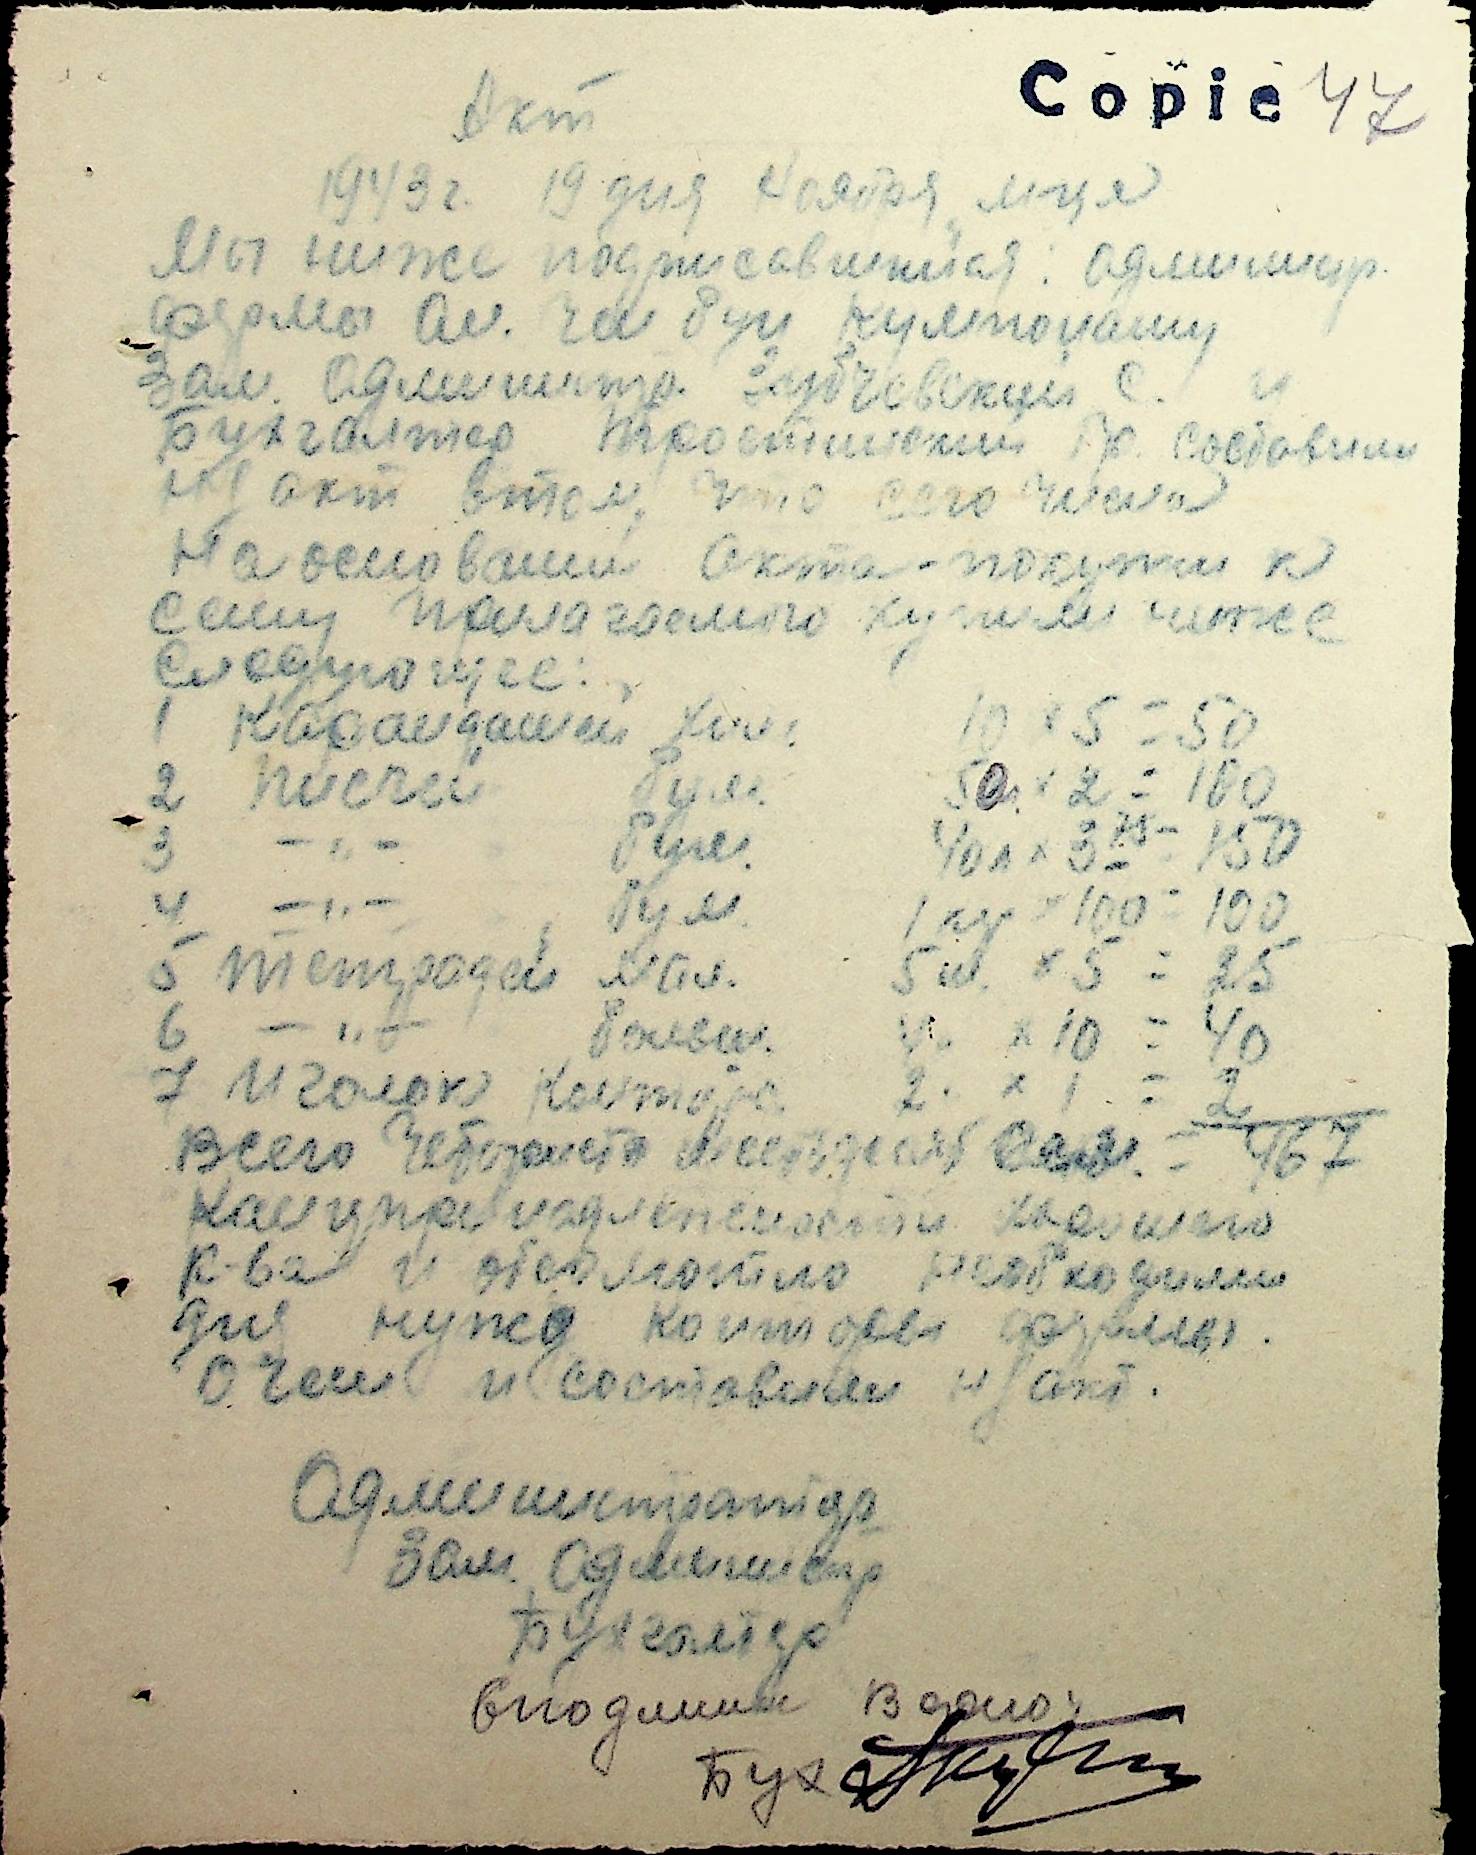 Copie 47
Акт
1943 г. 19 дня Ноября м-ця
Мы ниже подписавшиися: администр.
фермы Ал.
Зам. Администр. Зубчевский С. и
Бухгалтер Тростинский Гр. составили
н/акт в том, что сего числа
На основании Акта-покупки к
сему прилагаемого купили ниже
следующее:
1 Карандашей хим. 10 х 5 = 50
2 Писчей бум. 50л. х 2 = 100
3 -„- бум. 40л х 3 75 = 150
4 -„- бум. 1 х 100 = 100
5 Тетрадей мал. 5 ш. х 5 = 25
6 -„- больш. 4. х 10 = 40
7 Иголок контор. 2. х 1 = 2
Всего Четыреста шестьдесят сем. = 467
Канцпринадлежности хорошего
к-ва и необходимы
для нужд конторы фермы.
О чем и составили н/акт.
Администратор
Зам. Администр
Бухгалтер
Бух